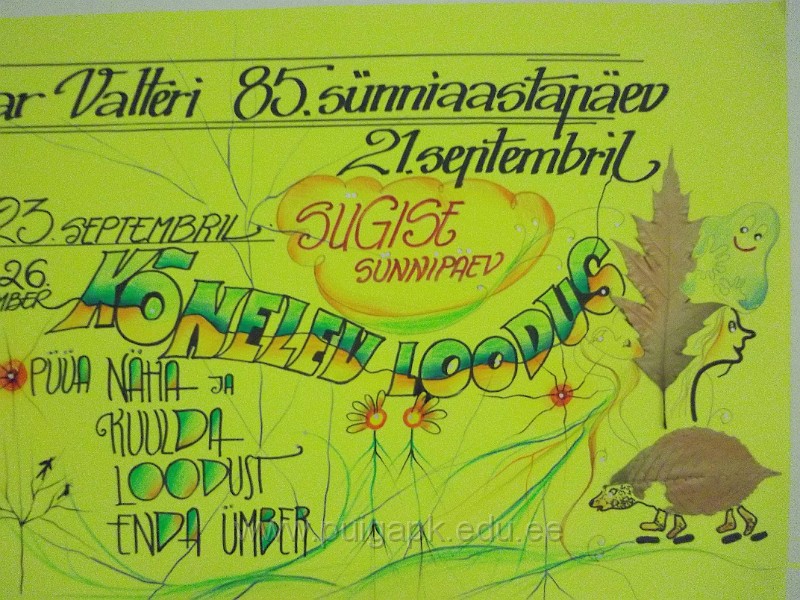 ar Valteri 85. sünniaastapäev
21. septembril
23. SEPTEMBRIL
SÜGISE
SÜNNIPÄEV
26.
MBER
KÕNELEV LOODUS
PÜÜA NÄHA JA
KUULDA
LOODUST
ENDA ÜMBER
www.puigapk.edu.ee